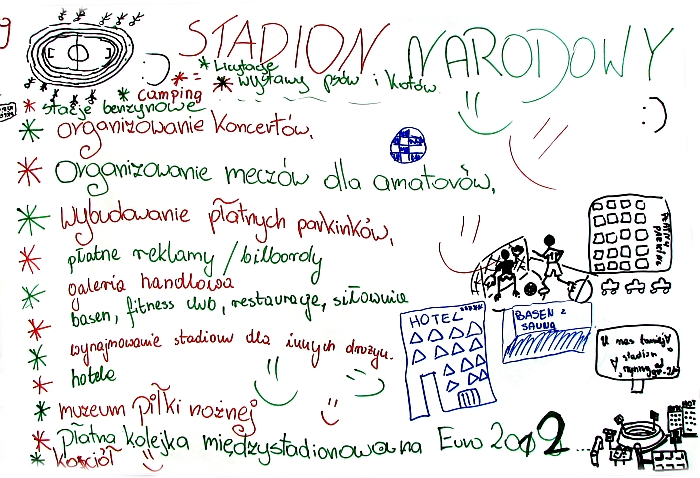 STADION NARODOWY
* licytacje
* = * wystawy psów i kotów
* camping
* stacje benzynowe
* organizowanie koncertów.
* Organizowanie meczów dla amatorów,
* Wybudowanie płatnych parkinków,
* płatne reklamy / bilboordy
* galeria handlowa
basen, fitness club, restauracje, siłownie
* wynajmowanie stadionu dla innych drużyn.
* hotele
* muzeum piłki nożnej
* płatna kolejka międzystadionowa na Euro 2012...
* Kościół
PŁATNY PARKING
HOTEL
BASEN z SAUNĄ
U nas taniej
stadion